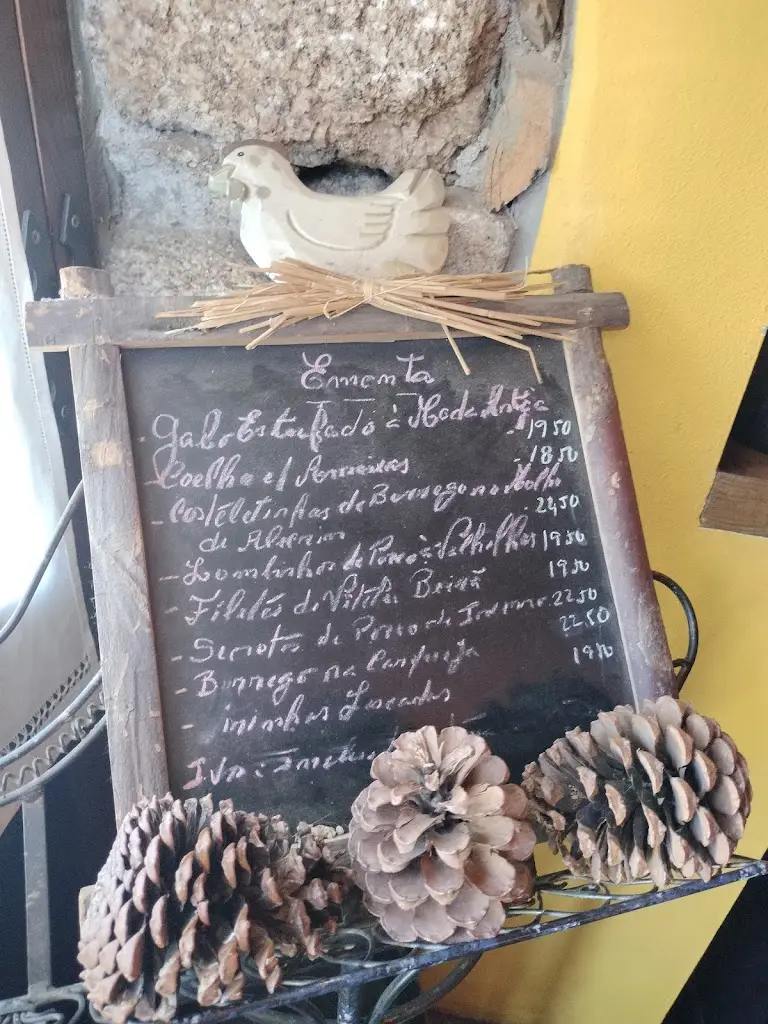 Ementa
- Galo Estufado à Moda Antiga - 1950
- Coelho c/ Ameixas - 1850
- Costeletinhas de Borrego no Molho
de Alecrim 2450
- Lombinhos de Porco à 1950
- Filetes de Vitela Beirã 1950
- Secretos de Porco de 2250
- Borrego na Carqueja 2250
1950